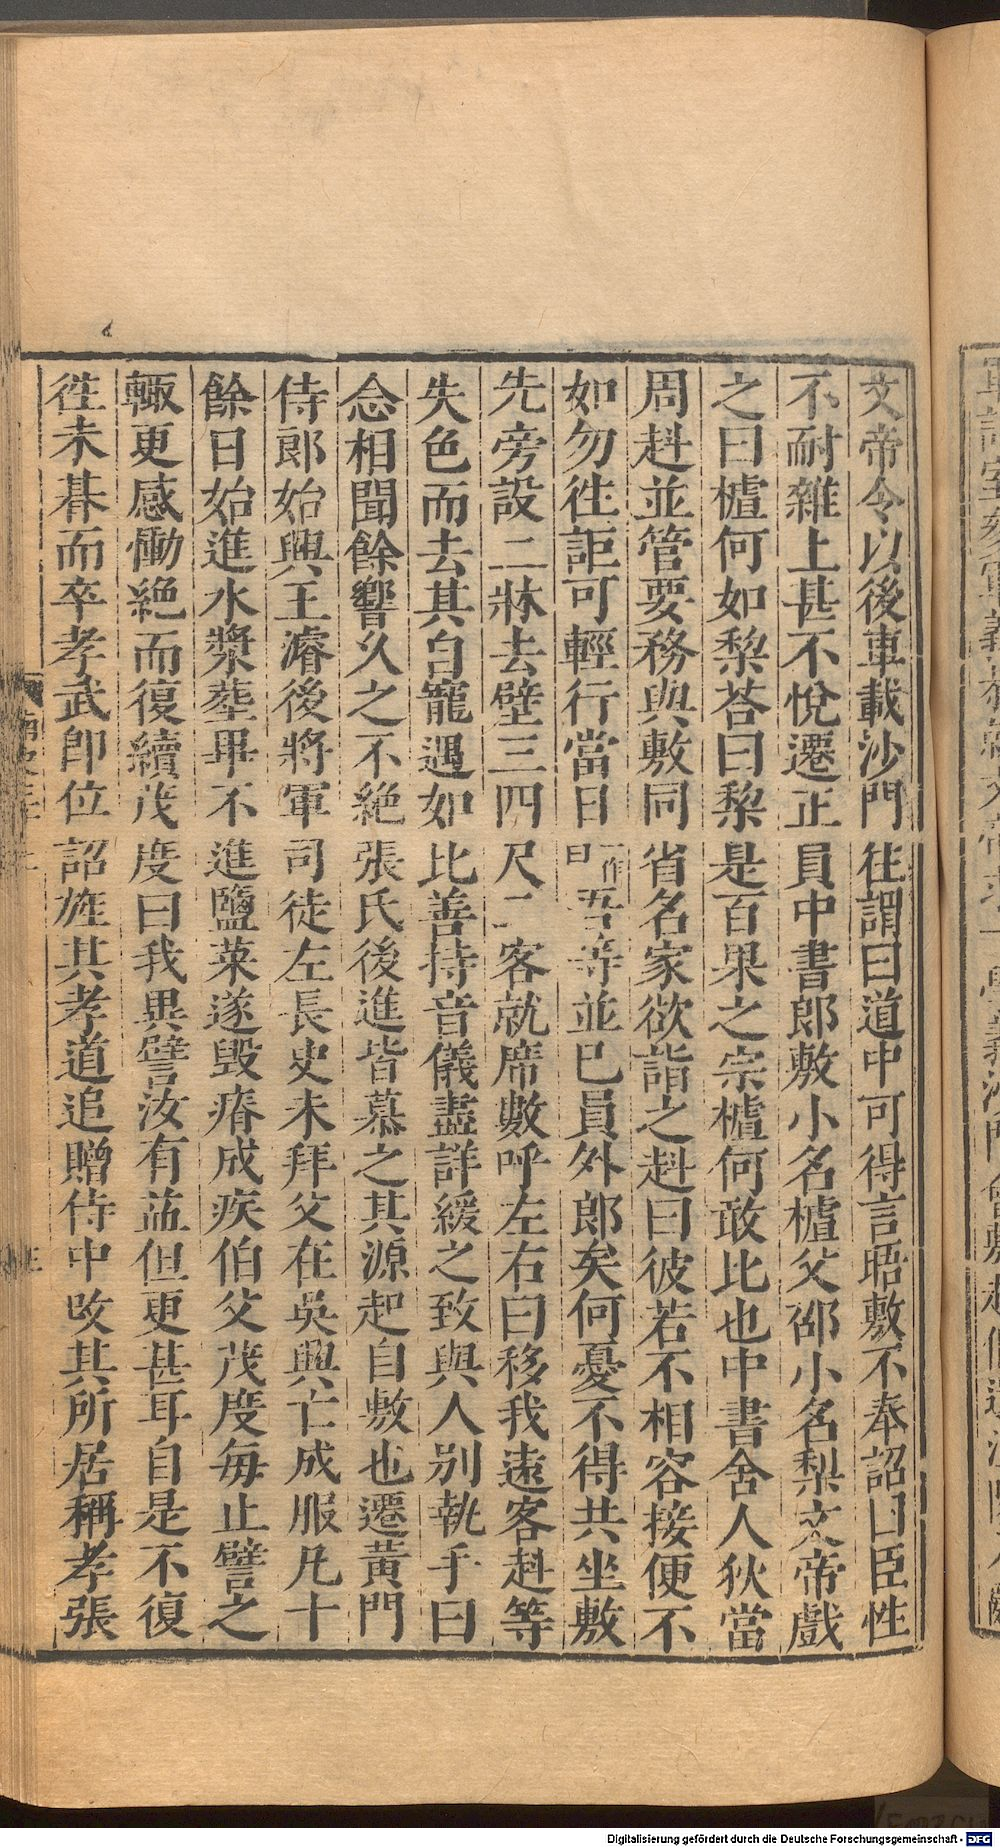 文帝令以後車載沙門往謂曰道中可得言晤敷不奉詔曰臣性
不耐雜上甚不悅遷正員中書郎敷小名樝父邵小名梨文帝戲
之曰樝何如梨荅曰梨是百果之宗樝何敢比也中書舍人狄當
周赳並管要務與敷同省名家欲詣之赳曰彼若不相容接便不
如勿徃詎可輕行當曰一作曰吾等並已員外郎矣何憂不得共坐敷
先旁設二牀去壁三四尺二客就席敷呼左右曰移我遠客赳等
失色而去其自寵遇如比善持音儀盡詳緩之致與人別執手曰
念相聞餘響久之不絕張氏後進皆慕之其源起自敷也遷黃門
侍郎始興王濬後將軍司徒左長史未拜父在吳興亡成服凡十
餘日始進水漿塟畢不進鹽菜遂毀瘠成疾伯父茂度每止譬之
輙更感慟絕而復續茂度曰我兾譬汝有益但更甚耳自是不復
徃未朞而卒孝武即位詔旌其孝道追贈侍中改其所居稱孝張
Digitalisierung gefördert durch die Deutsche Forschungsgemeinschaft - DFG